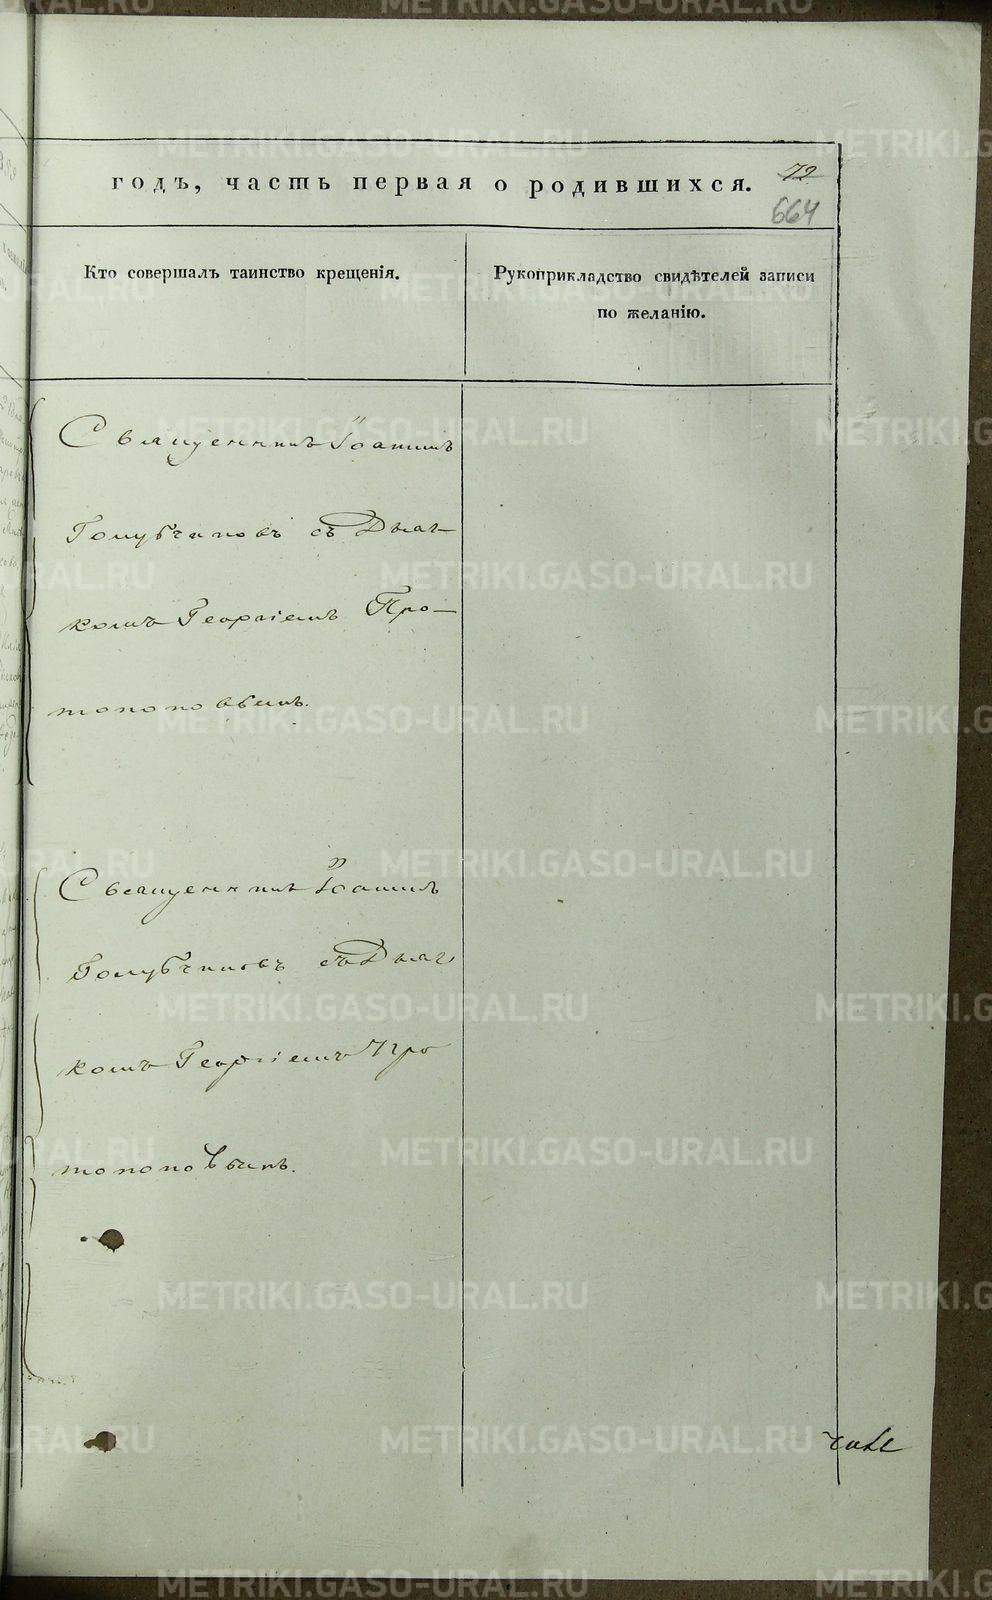 годъ, часть первая о родившихся.
72
664
Кто совершалъ таинство крещенія.
Рукоприкладство свидѣтелей записи
по желанію.
Священникъ Іоаннъ
Голубчиковъ съ Дьяч-
комъ Георгіемъ Про-
топоповымъ.
Священникъ Іоаннъ
Голубчиковъ съ Дьяч
комъ Георгіемъ Про
топоповымъ.
METRIKI.GASO-URAL.RU